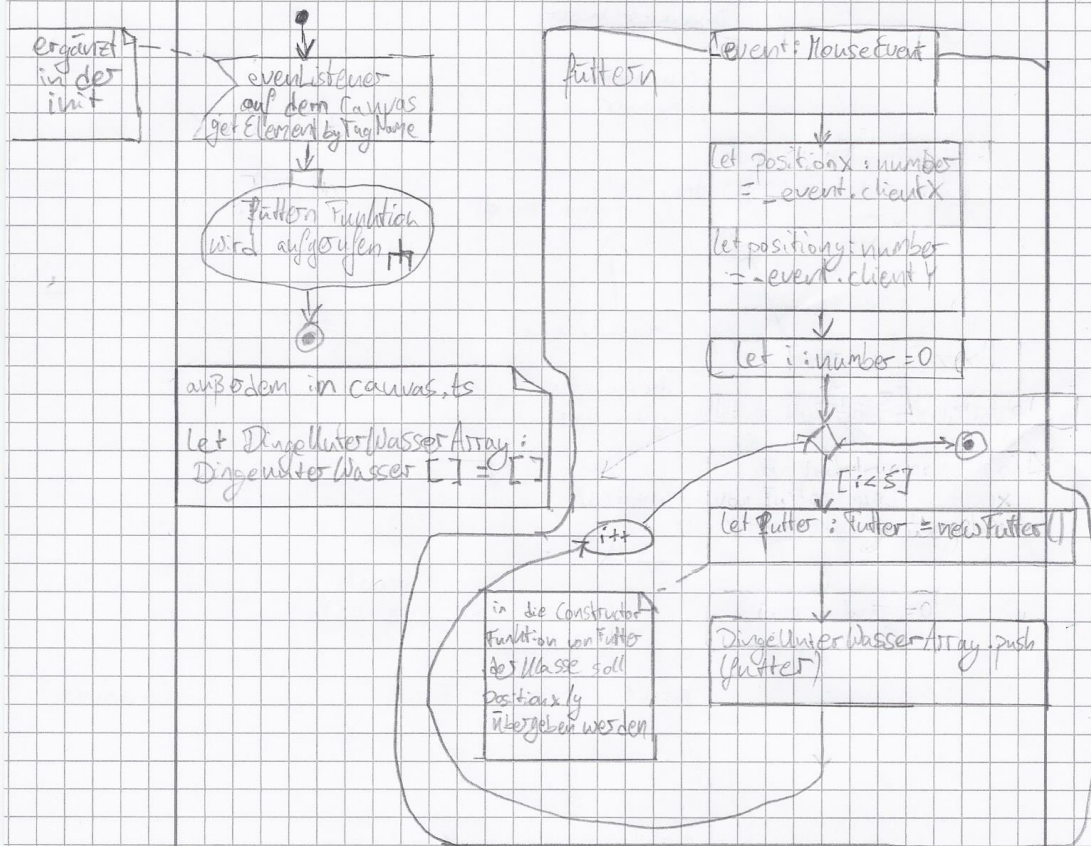 ergänzt
in der
init
evenListener
auf dem Canvas
getElementbyTagName
füttern Funktion
wird aufgerufen
außerdem in canvas.ts
let DingeUnterWasserArray :
DingeunterWasser [] = []
füttern
_event: MouseEvent
let positionx : number
= _event.clientX
let positiony : number
= _event.clientY
let i : number = 0
[i<5]
let futter : Futter = new Futter()
i++
in die Constructor
Funktion von Futter
der Klasse soll
positionx/y
übergeben werden
DingeUnterWasserArray.push
(futter)